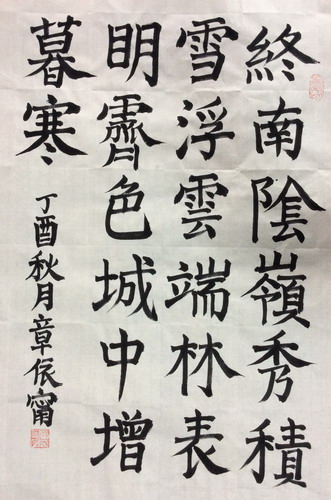 終南陰嶺秀積
雪浮雲端林表
明霽色城中增
暮寒
丁酉秋月章依甯